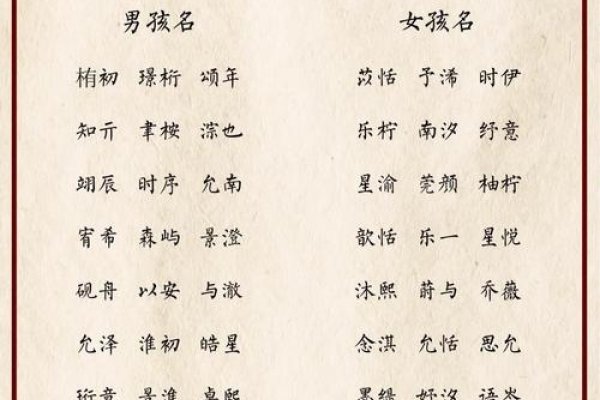 男孩名 女孩名
栯初 璟桁 颂年 苡恬 予浠 时伊
知亓 聿桉 淙也 乐柠 南汐 纾意
翊辰 时序 允南 星渝 莞颜 柚柠
宥希 森屿 景澄 歆恬 乐一 星悦
砚舟 以安 与澈 沐熙 莳与 乔薇
允泽 淮初 皓星 念淇 允恬 思允
景淮 卓熙 妤汐 语岑